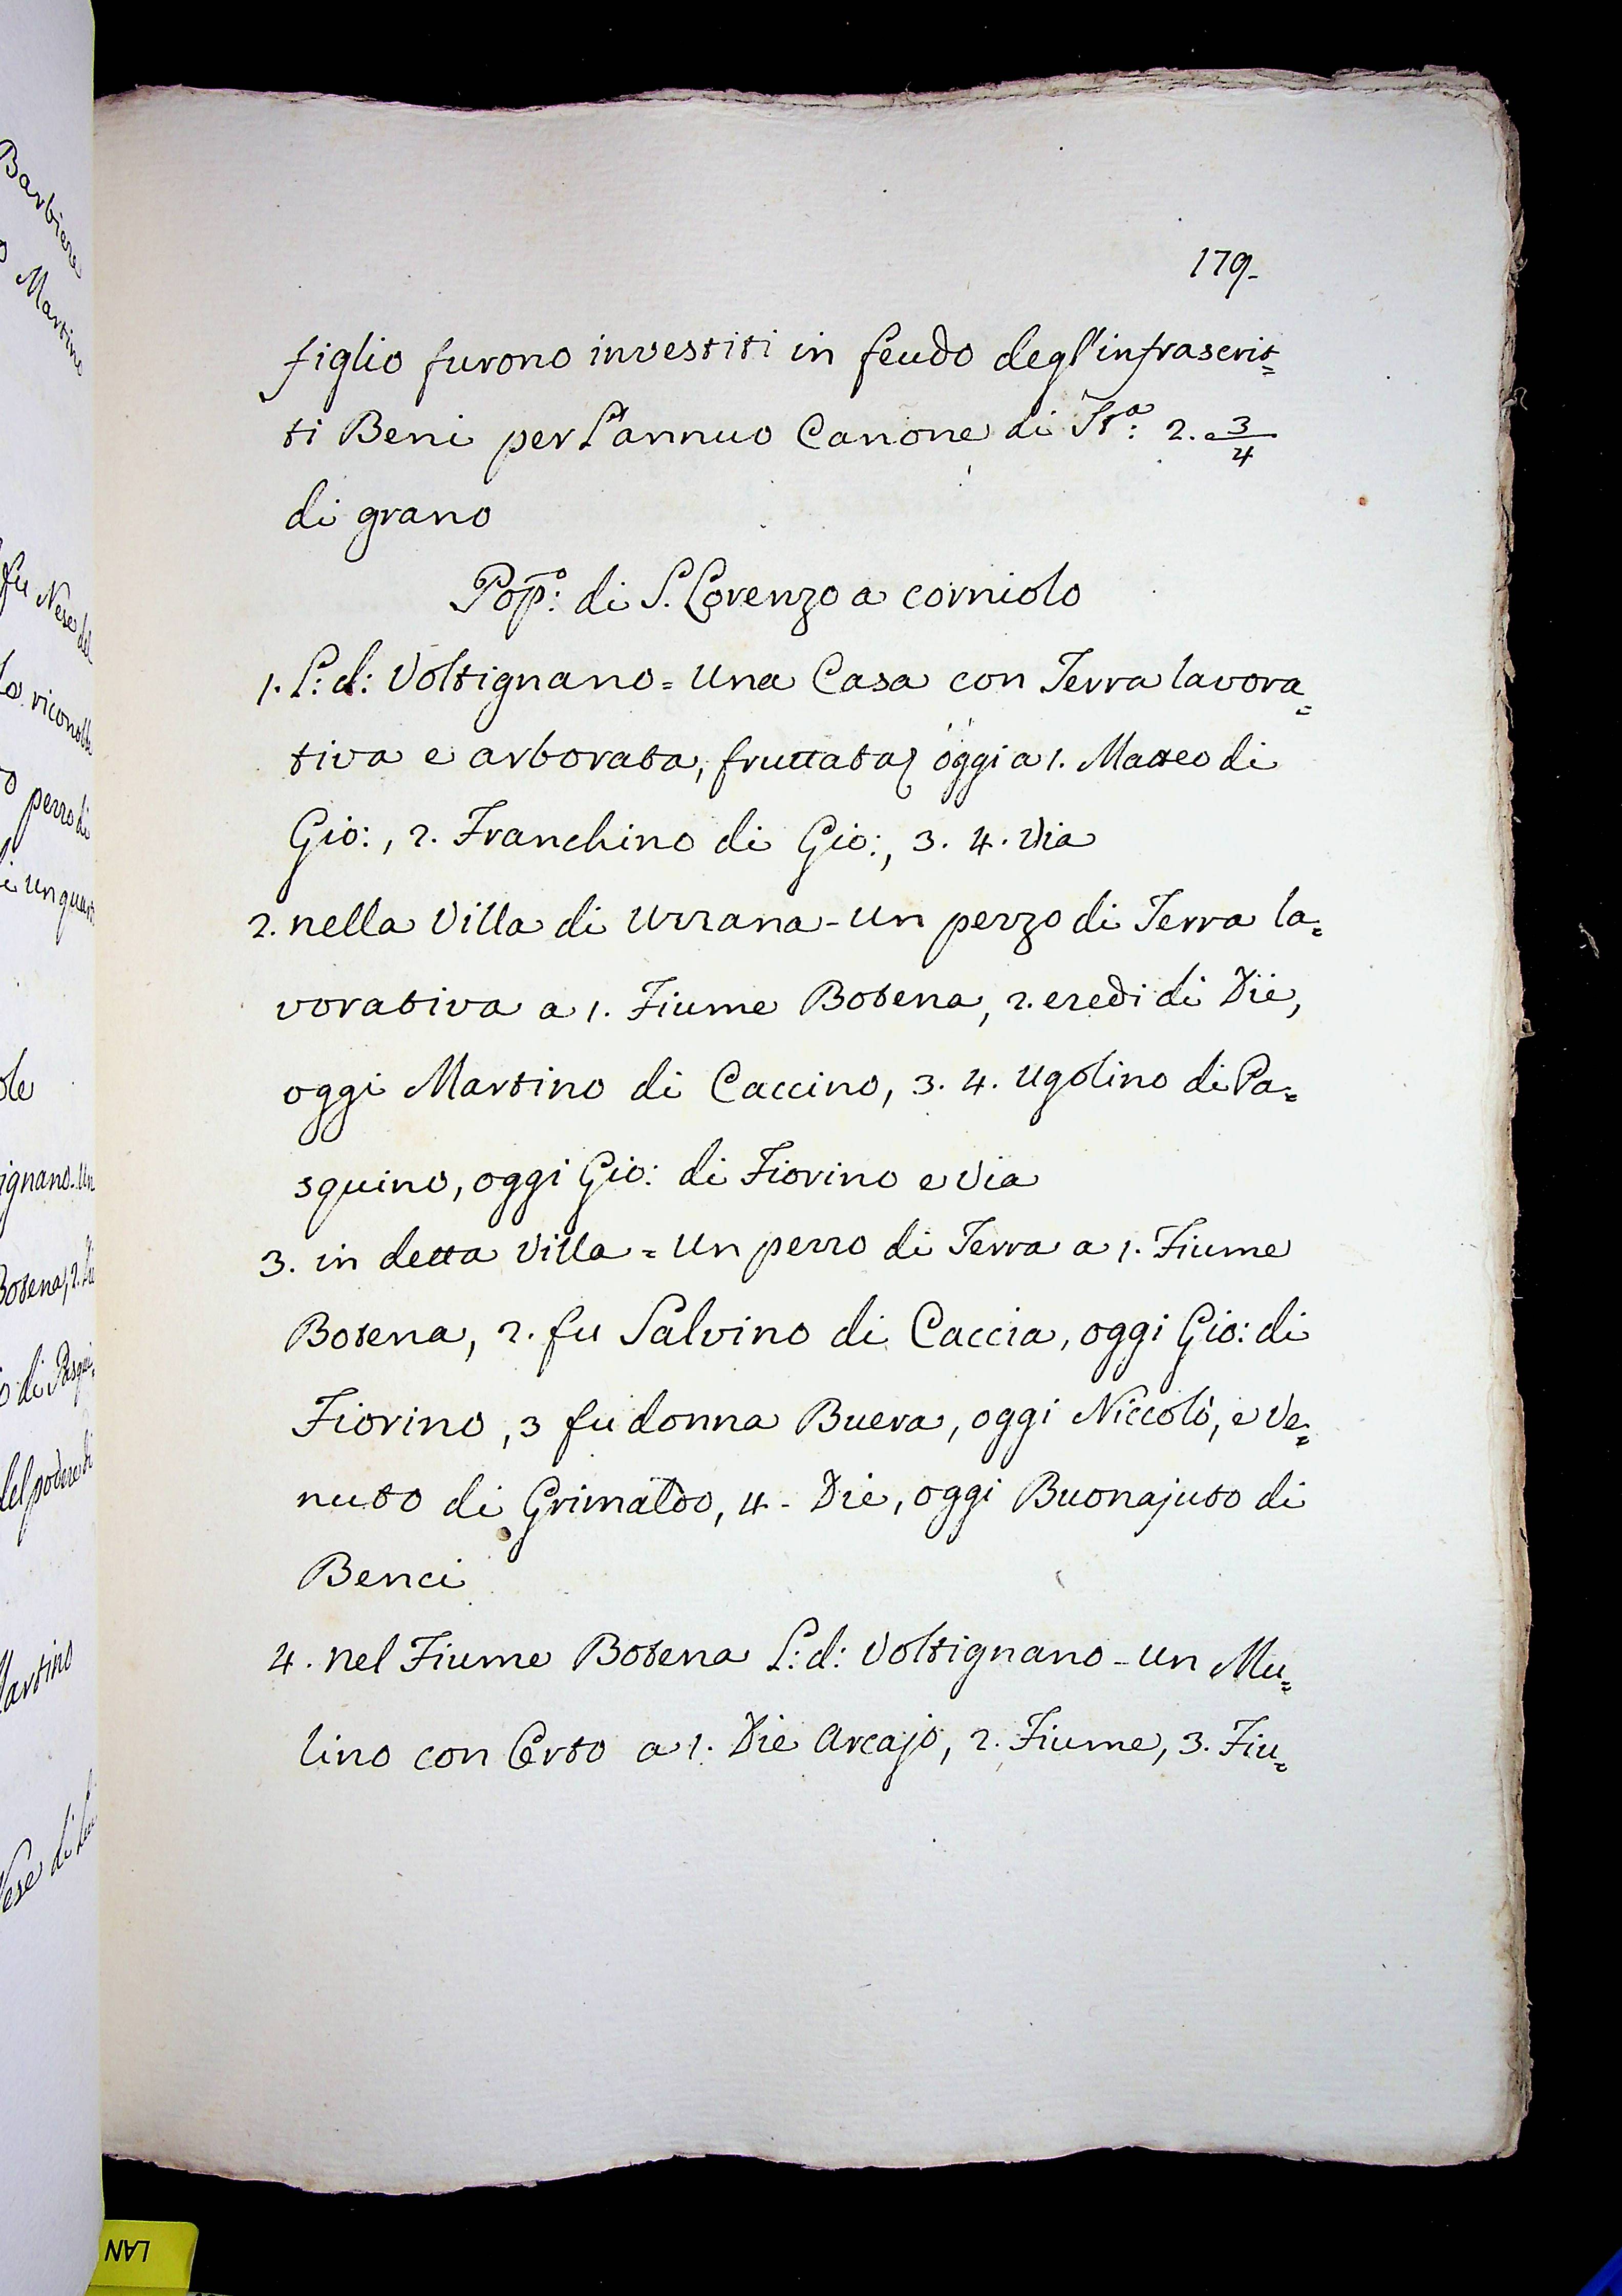 179.
figlio furono investiti in feudo degl'infrascrit=
ti Beni per l'annuo Canone di Stª: 2. 3/4
di grano
Pop̃º: di S. Lorenzo a corniolo
1. L: d: Voltignano = Una Casa con Terra lavora=
tiva e arborata, fruttata oggi a 1. Matteo di
Gio:, 2. Franchino di Gio:, 3. 4. Via
2. nella Villa di Uzzana - Un pezzo di Terra la=
vorativa a 1. Fiume Botena, 2. eredi di Die,
oggi Martino di Caccino, 3. 4. Ugolino di Pa=
squino, oggi Gio: di Fiorino e Via
3. in detta Villa = Un pezzo di Terra a 1. Fiume
Botena, 2. fu Salvino di Caccia, oggi Gio: di
Fiorino, 3 fu donna Buera, oggi Niccolò, e Ve=
nuto di Grimaldo, 4 - Die, oggi Buonajuto di
Benci
4. nel Fiume Botena L: d: Voltignano - Un Mu=
lino con Orto a 1. Die Arcajo, 2. Fiume, 3. Fiu=
Barbiere
Martino
fu Nese del
pezzo di
di un quar
ignano. Un
Botena, 2.
del podere di
Martino
LAN